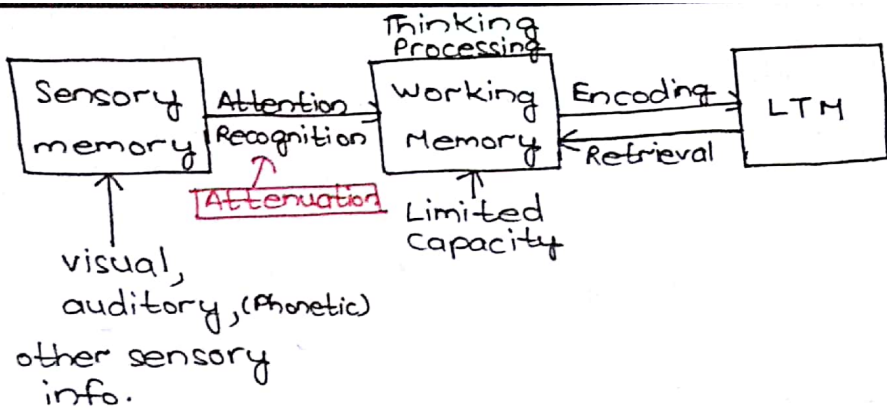 Thinking
Processing
Sensory
memory
Attention
Recognition
Attenuation
Working
Memory
Encoding
Retrieval
LTM
Limited
Capacity
visual,
auditory, (Phonetic)
other sensory
info.